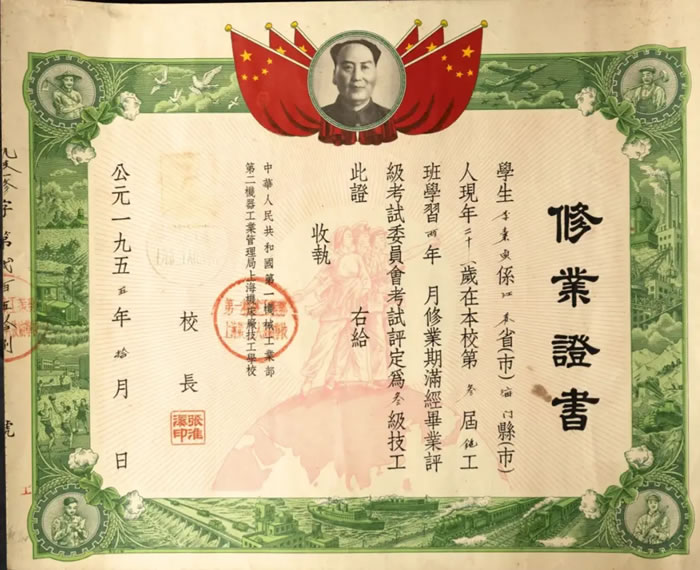 修業證書
學生李 係江蘇省(市)海门縣(市)
人現年二十 歲在本校第叁届 工
班學習两年 月修業期滿經畢業評
級考試委員會考試評定爲叁級技工
此證
右給
收執
中華人民共和國第一機械工業部
第二機器工業管理局上海機床廠技工學校
校長
張淮
印
公元一九五五年拾月 日
字第贰百
號